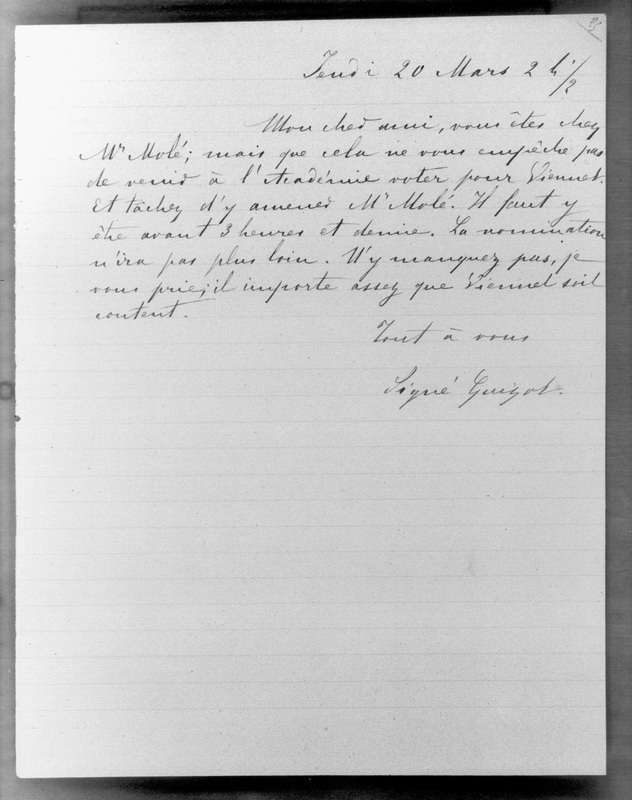 25
Jeudi 20 Mars 2 h 1/2
Mon cher ami, vous êtes chez
Mr Molé; mais que cela ne vous empêche pas
de venir à l'Académie voter pour Viennet.
Et tâchez d'y amener Mr Molé. Il faut y
être avant 3 heures et demie. La nomination
n'ira pas plus loin. N'y manquez pas, je
vous prie; il importe assez que Viennet soit
content.
Tout à vous
Signé Guizot.